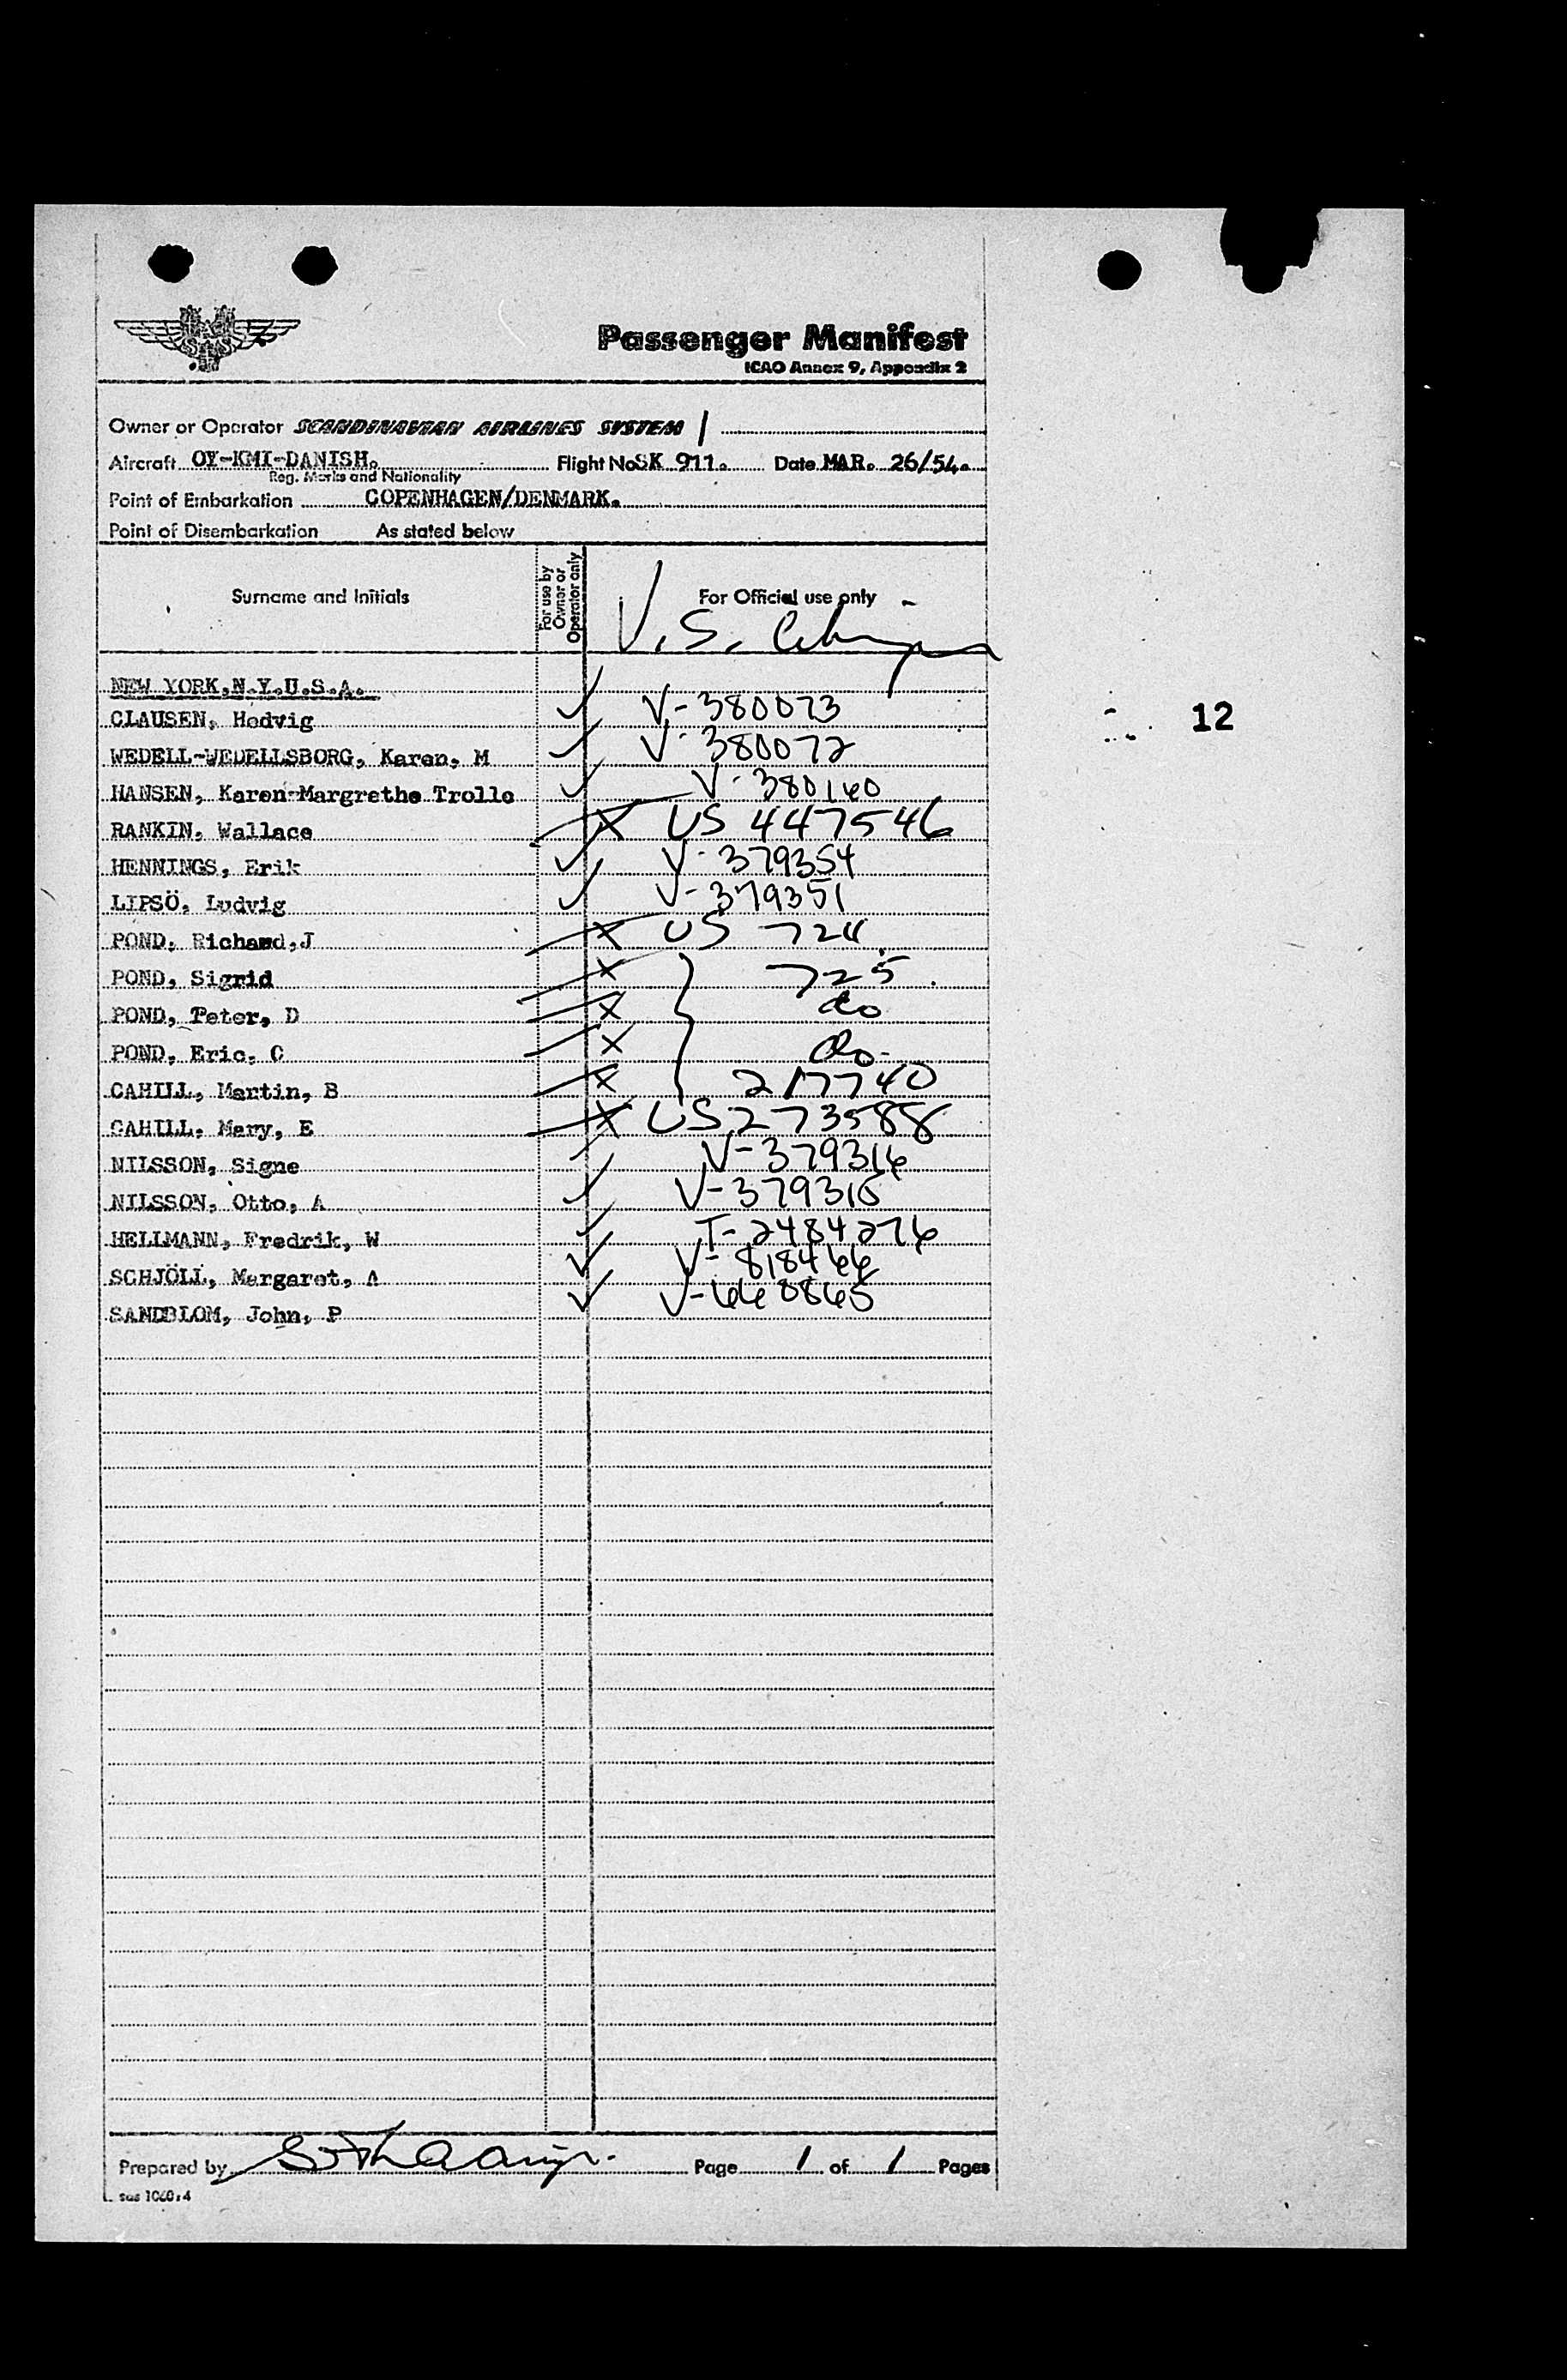 SAS
Passenger Manifest
ICAO Annex 9, Appendix 2
Owner or Operator SCANDINAVIAN AIRLINES SYSTEM /
Aircraft OY-KMI-DANISH. Flight No SK 911. Date MAR. 26/54.
Reg. Marks and Nationality
Point of Embarkation COPENHAGEN/DENMARK.
Point of Disembarkation As stated below
Surname and Initials For use by Owner or Operator only For Official use only
V.S.
NEW YORK,N.Y.U.S.A.
CLAUSEN, Hedvig ✓ V-380073
WEDELL-WEDELLSBORG, Karen, M ✓ V-380072
HANSEN, Karen-Margrethe Trolle ✓ V-380160
RANKIN, Wallace X US 447546
HENNINGS, Erik ✓ V-379354
LIPSÖ, Ludvig ✓ V-379351
POND, Richard,J X US 724
POND, Sigrid X 725
POND, Peter, D X do
POND, Eric, C X do-
CAHILL, Martin, B X 217740
CAHILL, Mary, E X US 273588
NILSSON, Signe ✓ V-379316
NILSSON, Otto, A ✓ V-379315
HELLMANN, Fredrik, W ✓ T-2484276
SCHJÖLL, Margaret, A ✓ V-818466
SANDBLOM, John, P ✓ V-660865
12
Prepared by Page 1 of 1 Pages
sas 1060:4